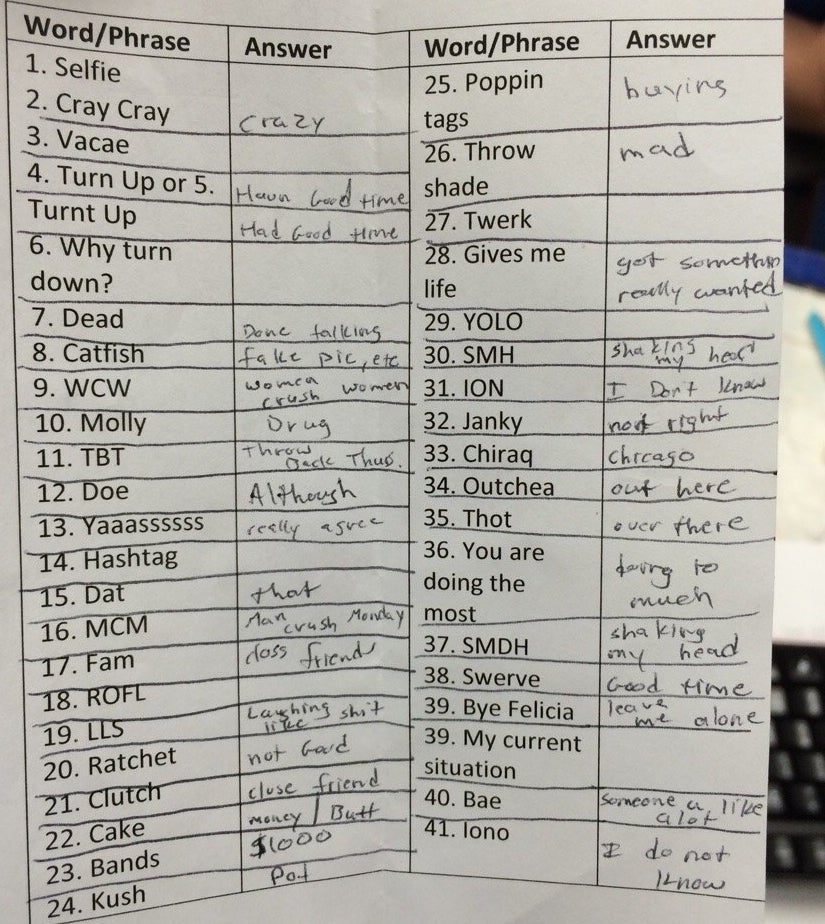 Word/Phrase Answer
1. Selfie
2. Cray Cray crazy
3. Vacae
4. Turn Up or 5. Havn Good time
Turnt Up Had Good time
6. Why turn
down?
7. Dead Done talking
8. Catfish fake pic, etc
9. WCW women crush women
10. Molly Drug
11. TBT Throw Back Thus.
12. Doe Although
13. Yaaassssss really agree
14. Hashtag
15. Dat that
16. MCM Man crush Monday
17. Fam closs friends
18. ROFL
19. LLS Laughing like shit
20. Ratchet not Good
21. Clutch close friend
22. Cake money / Butt
23. Bands $1000
24. Kush Pot
Word/Phrase Answer
25. Poppin buying
tags
26. Throw mad
shade
27. Twerk
28. Gives me got somethin
life really wanted
29. YOLO
30. SMH shaking my head
31. ION I Don't know
32. Janky not right
33. Chiraq chicago
34. Outchea out here
35. Thot over there
36. You are
doing the doing to
most much
37. SMDH shaking my head
38. Swerve Good time
39. Bye Felicia leave me alone
39. My current
situation
40. Bae someone u like alot
41. Iono I do not
know